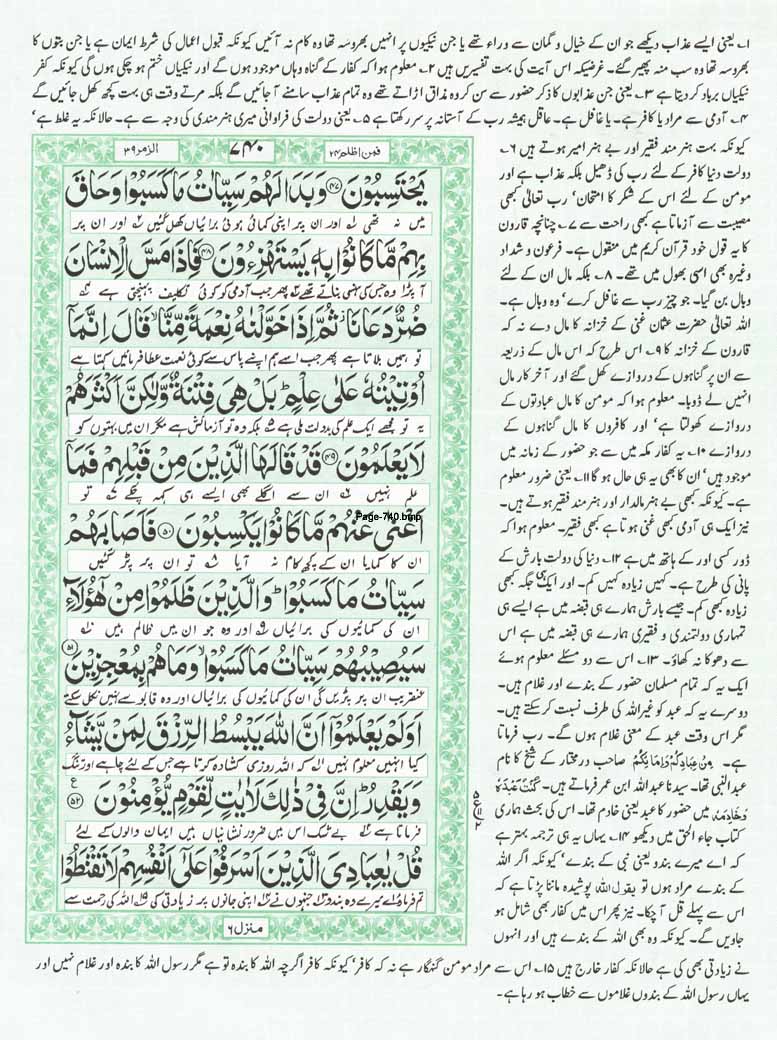 ۱۔ یعنی ایسے عذاب دیکھے جو ان کے خیال و گمان سے وراء تھے یا جن نیکیوں پر انہیں بھروسہ تھا وہ کام نہ آئیں کیونکہ قبول اعمال کی شرط ایمان ہے یا جن بتوں کا
بھروسہ تھا وہ سب منہ پھیر گئے۔ غرضیکہ اس آیت کی بہت تفسیریں ہیں ۲۔ معلوم ہوا کہ کفار کے گناہ وہاں موجود ہوں گے اور نیکیاں ختم ہو چکی ہوں گی کیونکہ کفر
نیکیاں برباد کر دیتا ہے ۳۔ یعنی جن عذابوں کا ذکر حضور سے سن کر وہ مذاق اڑاتے تھے وہ تمام عذاب سامنے آ جائیں گے بلکہ مرتے وقت ہی بہت کچھ کھل جائیں گے
۴۔ آدمی سے مراد یا کافر ہے۔ یا غافل ہے۔ عاقل ہمیشہ رب کے آستانہ پر سر رکھتا ہے ۵۔ یعنی دولت کی فراوانی میری ہنرمندی کی وجہ سے ہے۔ حالانکہ یہ غلط ہے‘
کیونکہ بہت ہنرمند فقیر اور بے ہنر امیر ہوتے ہیں ۶۔
دولت دنیا کافر کے لئے رب کی ڈھیل بلکہ عذاب ہے اور
مومن کے لئے اس کے شکر کا امتحان‘ رب تعالیٰ کبھی
مصیبت سے آزماتا ہے کبھی راحت سے ۷۔ چنانچہ قارون
کا یہ قول خود قرآن کریم میں منقول ہے۔ فرعون و شداد
وغیرہ بھی اسی بھول میں تھے۔ ۸۔ بلکہ مال ان کے لئے
وبال بن گیا۔ جو چیز رب سے غافل کرے‘ وہ وبال ہے۔
اللہ تعالیٰ حضرت عثمان غنی کے خزانہ کا مال دے نہ کہ
قارون کے خزانہ کا ۹۔ اس طرح کہ اس مال کے ذریعہ
سے ان پر گناہوں کے دروازے کھل گئے اور آخر کار مال
انہیں لے ڈوبا۔ معلوم ہوا کہ مومن کا مال عبادتوں کے
دروازے کھولتا ہے‘ اور کافروں کا مال گناہوں کے
دروازے ۱۰۔ یہ کفار مکہ میں سے جو حضور کے زمانہ میں
موجود ہیں‘ ان کا بھی یہ ہی حال ہو گا ۱۱۔ یعنی ضرور معلوم
ہے۔ کیونکہ کبھی بے ہنر مالدار اور ہنرمند فقیر ہوتے ہیں۔
نیز ایک ہی آدمی کبھی غنی ہوتا ہے کبھی فقیر۔ معلوم ہوا کہ
ڈور کسی اور کے ہاتھ میں ہے ۱۲۔ دنیا کی دولت بارش کے
پانی کی طرح ہے۔ کہیں زیادہ کہیں کم۔ اور ایک ہی جگہ کبھی
زیادہ کبھی کم۔ جیسے بارش ہمارے ہی قبضہ میں ہے ایسے ہی
تمہاری دولتمندی و فقیری ہمارے ہی قبضہ میں ہے اس
سے دھوکا نہ کھاؤ۔ ۱۳۔ اس سے دو مسئلے معلوم ہوئے
ایک یہ کہ تمام مسلمان حضور کے بندے اور غلام ہیں۔
دوسرے یہ کہ عبد کو غیر اللہ کی طرف نسبت کر سکتے ہیں۔
مگر اس وقت عبد کے معنی غلام ہوں گے۔ رب فرماتا
ہے۔ مِنْ عِبَادِكُمْ وَاِمَآئِكُمْ صاحب درمختار کے شیخ کا نام
عبد النبی تھا۔ سیدنا عبد اللہ ابن عمر فرماتے ہیں۔ كُنْتُ عَبْدَهٗ
وَخَادِمَهٗ میں حضور کا عبد یعنی خادم تھا۔ اس کی بحث ہماری
کتاب جاء الحق میں دیکھو ۱۴۔ یہاں یہ ہی ترجمہ بہتر ہے
کہ اے میرے بندو یعنی نبی کے بندے‘ کیونکہ اگر اللہ
کے بندے مراد ہوں تو يقول الله پوشیدہ ماننا پڑتا ہے کہ
اس سے پہلے قل آ چکا۔ نیز پھر اس میں کفار بھی شامل ہو
جاویں گے۔ کیونکہ وہ بھی اللہ کے بندے ہیں اور انہوں
نے زیادتی بھی کی ہے حالانکہ کفار خارج ہیں ۱۵۔ اس سے مراد مومن گنہگار ہے نہ کہ کافر‘ کیونکہ کافر اگرچہ اللہ کا بندہ تو ہے مگر رسول اللہ کا بندہ اور غلام نہیں اور
یہاں رسول اللہ کے بندوں غلاموں سے خطاب ہو رہا ہے۔
فمن اظلم ۲۴
۷۴۰
الزمر ۳۹
يَحْتَسِبُوْنَ ﴿۴۷﴾ وَبَدَا لَهُمْ سَيِّاٰتُ مَا كَسَبُوْا وَحَاقَ
میں نہ تھی ۱ اور ان پر اپنی کمائی ہوئی برائیاں کھل گئیں ۲ اور ان پر
بِهِمْ مَّا كَانُوْا بِهٖ يَسْتَهْزِءُوْنَ ﴿۴۸﴾ فَاِذَا مَسَّ الْاِنْسَانَ
آ پڑا وہ جس کی ہنسی بناتے تھے ۳ پھر جب آدمی کو کوئی تکلیف پہنچتی ہے ۴
ضُرٌّ دَعَانَا ثُمَّ اِذَا خَوَّلْنٰهُ نِعْمَةً مِّنَّا قَالَ اِنَّمَا
تو ہمیں بلاتا ہے پھر جب اسے ہم اپنے پاس سے کوئی نعمت عطا فرمائیں کہتا ہے
اُوْتِيْتُهٗ عَلٰى عِلْمٍ بَلْ هِيَ فِتْنَةٌ وَّلٰكِنَّ اَكْثَرَهُمْ
یہ تو مجھے ایک علم کی بدولت ملی ہے ۵ بلکہ وہ تو آزمائش ہے مگر ان میں بہتوں کو
لَا يَعْلَمُوْنَ ﴿۴۹﴾ قَدْ قَالَهَا الَّذِيْنَ مِنْ قَبْلِهِمْ فَمَا
علم نہیں ۶ ان سے اگلے بھی ایسے ہی کہہ چکے ۷ تو
اَغْنٰى عَنْهُمْ مَّا كَانُوْا يَكْسِبُوْنَ ﴿۵۰﴾ فَاَصَابَهُمْ
Page-740.bmp
ان کا کمایا ان کے کچھ کام نہ آیا ۸ تو ان پر پڑ گئیں
سَيِّاٰتُ مَا كَسَبُوْا وَالَّذِيْنَ ظَلَمُوْا مِنْ هٰٓؤُلَآءِ
ان کی کمائیوں کی برائیاں ۹ اور وہ جو ان میں ظالم ہیں ۱۰
سَيُصِيْبُهُمْ سَيِّاٰتُ مَا كَسَبُوْا وَمَا هُمْ بِمُعْجِزِيْنَ ﴿۵۱﴾
عنقریب ان پر پڑیں گی ان کی کمائیوں کی برائیاں اور وہ قابو سے نہیں نکل سکتے
اَوَلَمْ يَعْلَمُوْٓا اَنَّ اللّٰهَ يَبْسُطُ الرِّزْقَ لِمَنْ يَّشَآءُ
کیا انہیں معلوم نہیں ۱۱ کہ اللہ روزی کشادہ کرتا ہے جس کے لئے چاہے اور تنگ
وَيَقْدِرُ اِنَّ فِيْ ذٰلِكَ لَاٰيٰتٍ لِّقَوْمٍ يُّؤْمِنُوْنَ ﴿۵۲﴾ ع
فرماتا ہے ۱۲ بے شک اس میں ضرور نشانیاں ہیں ایمان والوں کے لئے
قُلْ يٰعِبَادِيَ الَّذِيْنَ اَسْرَفُوْا عَلٰٓى اَنْفُسِهِمْ لَا تَقْنَطُوْا
تم فرماؤ ۱۳ اے میرے وہ بندو ۱۴ جنہوں نے اپنی جانوں پر زیادتی کی ۱۵ اللہ کی رحمت سے
منزل ۶